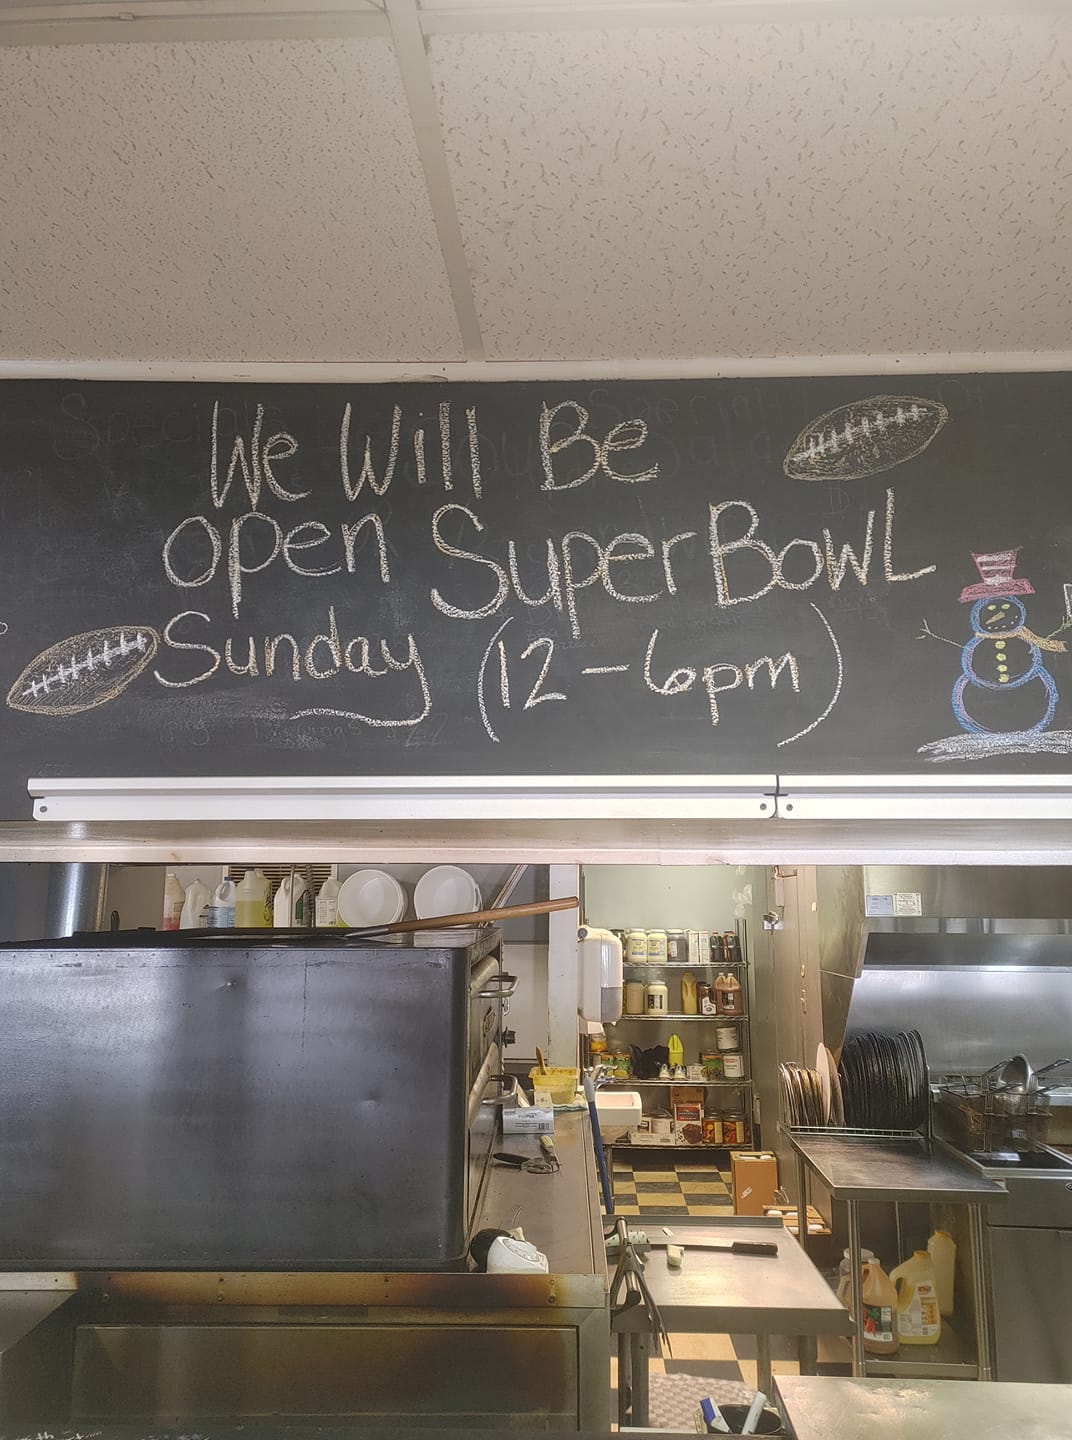 We Will Be
open SuperBowl
Sunday (12-6pm)